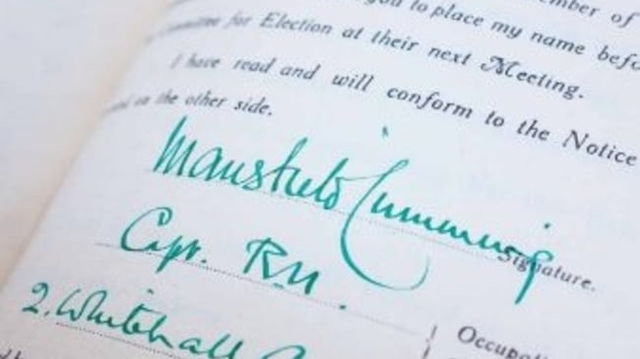 mber of
you to place my name befo
Committee for Election at their next Meeting.
I have read and will conform to the Notice
on the other side.
Mansfield Cumming
Signature.
Capt. R.N.
Occupat
2. Whitehall